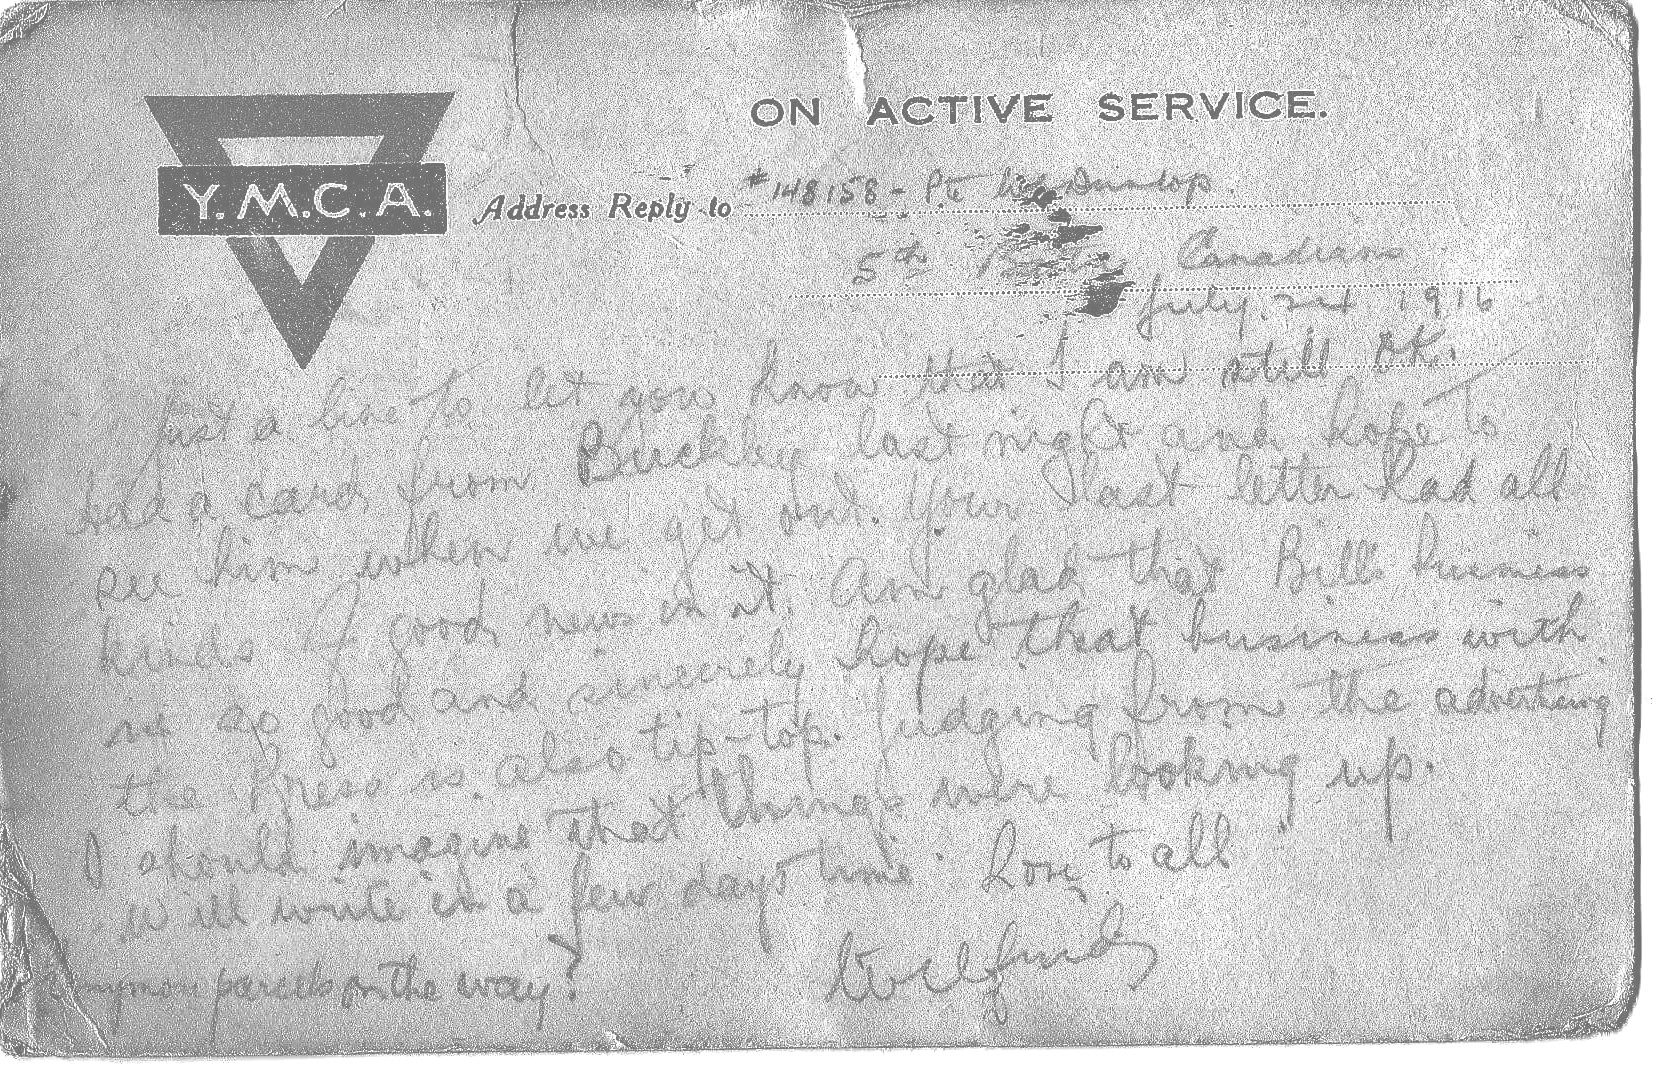 ON ACTIVE SERVICE.
Y.M.C.A.
Address Reply to #148158 - Pte Dunlop.
5th Canadians
July 1916
Just a line to let you know that I am still O.K.
Had a card from Buckley last night and hope to
see him when we get out. Your last letter had all
kinds of good news in it. Am glad that Bills business
is so good and sincerely hope that business with
the Press is also tip-top. Judging from the advertising
I should imagine that things were looking up.
Will write in a few days time. Love to all
Wilfred
any more parcels on the way?